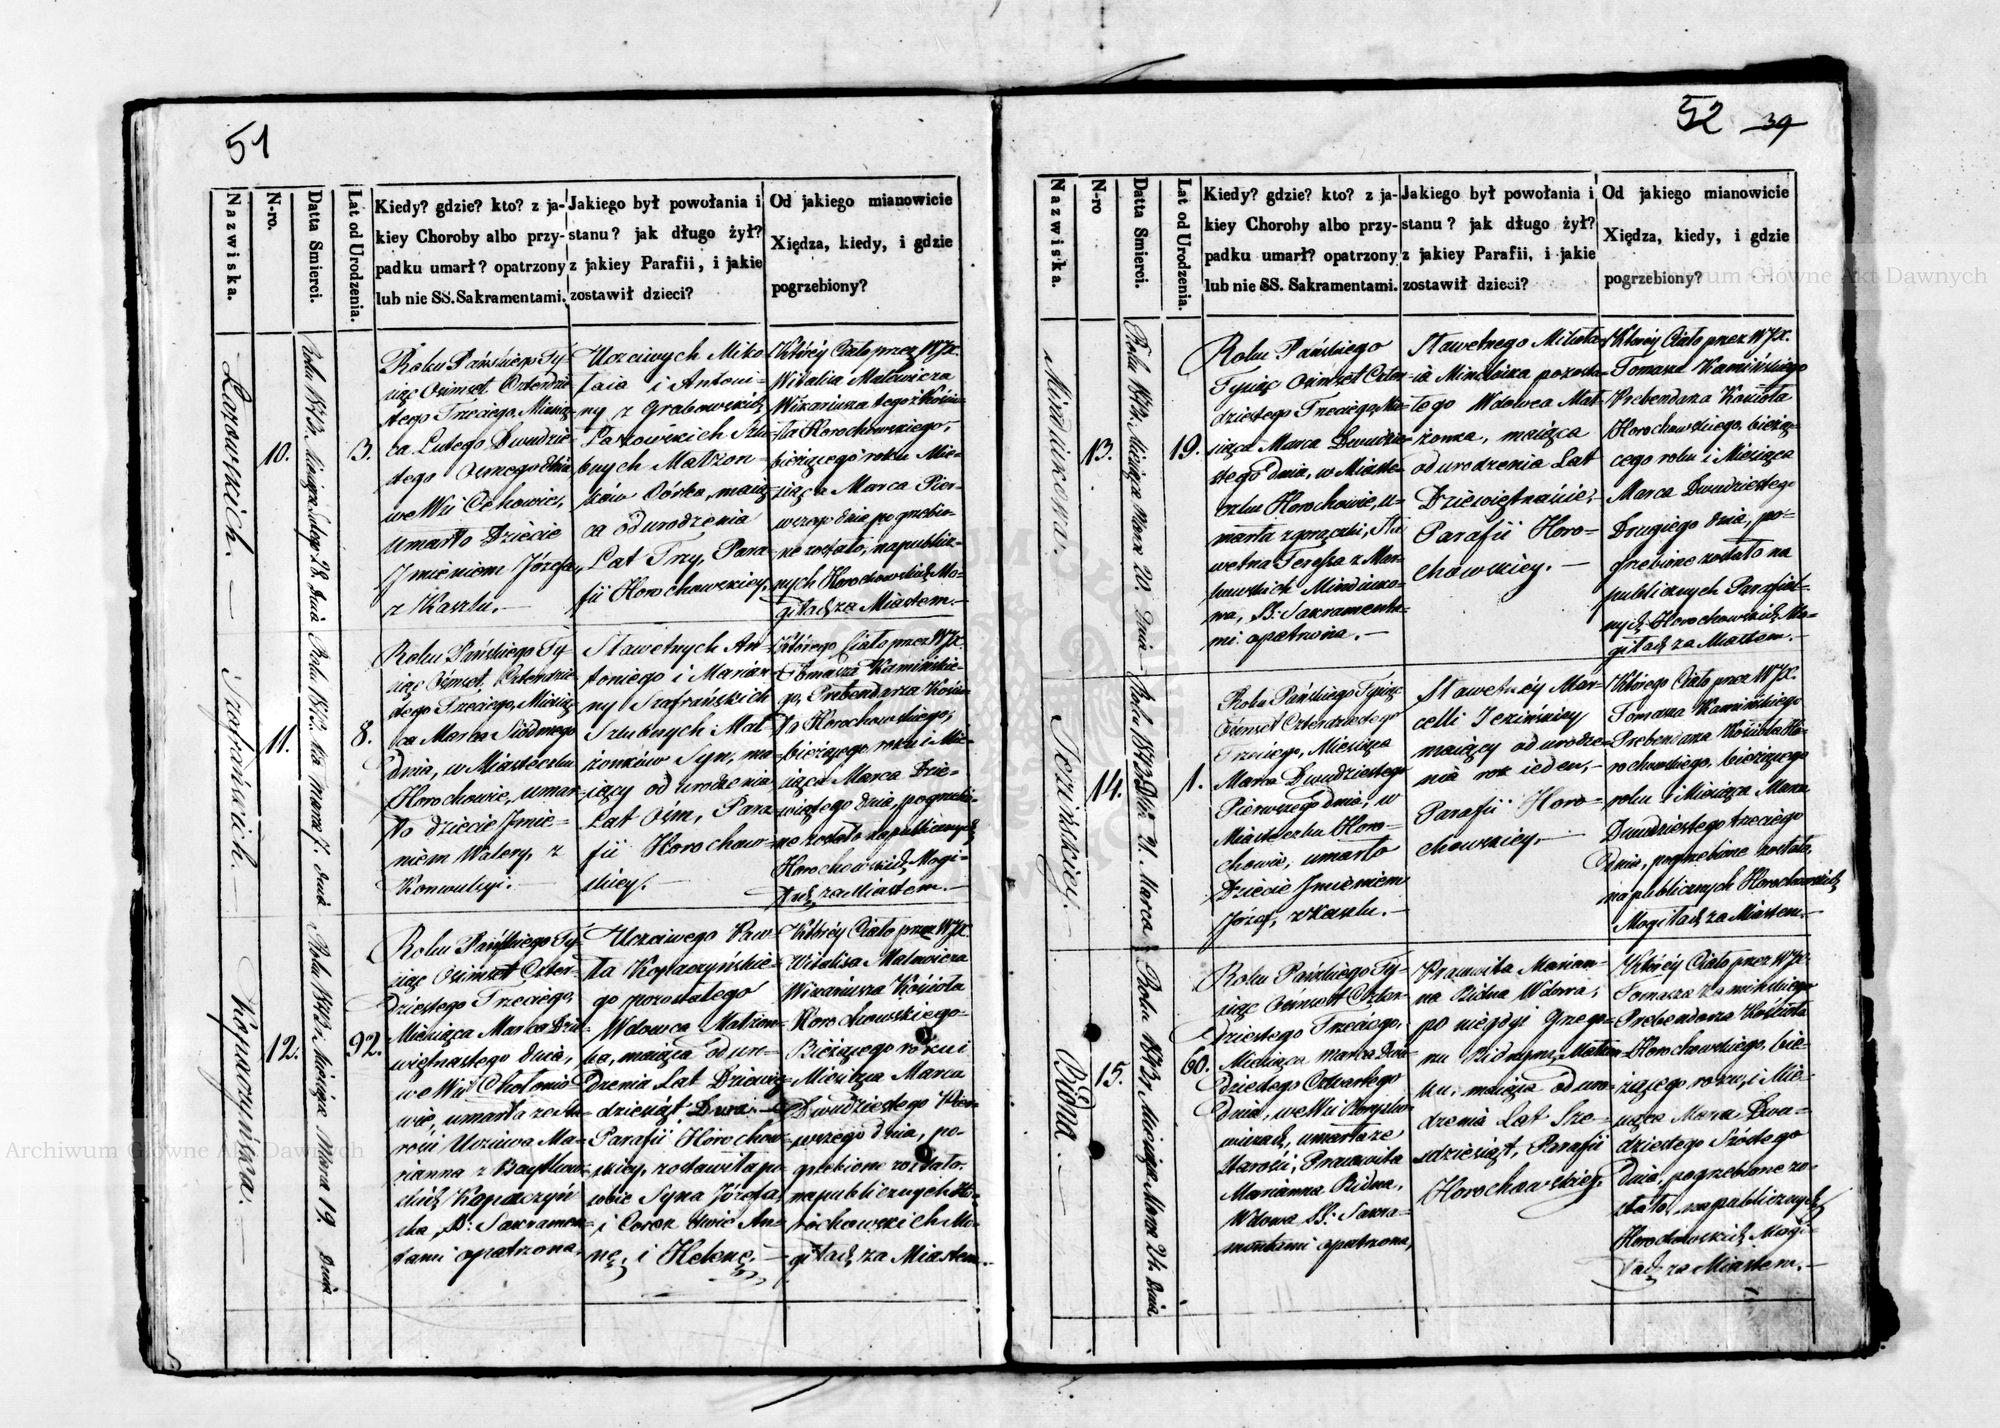 51
Nazwiska.
N-ro.
Datta Smierci.
Lat od Urodzenia.
Kiedy? gdzie? kto? z ja-
kiey Choroby albo przy-
padku umarł? opatrzony
lub nie SS. Sakramentami.
Jakiego był powołania i
stanu? jak długo żył?
z jakiey Parafii, i jakie
zostawił dzieci?
Od jakiego mianowicie
Xiędza, kiedy, i gdzie
pogrzebiony?
10.
Roku 1843. Miesiąca Lutego 28. dnia
3.
Roku Pańskiego Ty-
siąc Ośmset Czterdzie
stego Trzeciego, Miesią-
ca Lutego Dwudzie-
stego Osmego dnia
we Wsi Cehowie,
umarło Dziecie
Jmieniem Józefa,
z Kaszlu.—
Uczciwych Miko
łaia i Antoni-
ny z Grabowskich
bnych Małżon-
ków Córka, maią-
ca od urodzenia
Lat Trzy, Para-
fii Horochowskiey,
Któréy Ciało przez WJX.
Witalisa Malewicza
Wikariusza tegoż Kościo-
ła Horochowskiego,
bieżącego roku Mie-
siąca Marca Pier-
wszego dnia pogrzebio-
ne zostało, na publicz-
nych Horochowskich Mo-
giłach za Miastem.—
Szafrańskich.—
11.
8.
Roku Pańskiego Ty-
siąc Ośmset, Czterdzie-
stego Trzeciego, Miesią-
ca Marca Siódmego
dnia, w Miasteczku
Horochowie, umar-
ło dziecie Jmie-
niem Walery, z
Konwulsyi.—
Sławetnych An-
toniego i Marian-
ny Szafrańskich
Szlubnych Mał-
żonków Syn, ma-
iący od urodzenia
Lat Ośm, Para-
fii Horochow-
skiey.—
Którego Ciało przez WJX.
Tomasza Kamińskie-
go, Prebendarza Kościo-
ła Horochowskiego,
bieżącego roku i Mie-
siąca Marca Dzie-
wiątego dnia, pogrzebio-
ne zostało na publicznych
Horochowskich Mogi-
łach za Miastem.—
Kopaczyńska.—
12.
Roku 1843. Miesiąca Marca 19. Dnia
92.
Roku Pańskiego Ty-
siąc Ośmset Czter-
dziestego Trzeciego,
Miesiąca Marca Dzie-
więtnastego dnia,
we Wsi
wie, umarła ze Sta-
rości Uczciwa Ma-
rianna z
Kopaczyń
ska, SS. Sakramen-
tami opatrzona,
Uczciwego Paw-
ła Kopaczyńskie-
go pozostałego
Wdowca Małżon-
ka, maiąca od uro-
dzenia Lat Dziewię-
dziesiąt Dwa.—
Parafii Horochow-
skiey, zostawiła po
sobie Syna Józefa,
i Corek dwie An-
nę, i Helenę.—
Któréy Ciało przez WJX.
Witalisa Malewicza
Wikariusza Kościoła
Horochowskiego
Bieżącego roku i
Miesiąca Marca
Dwudziestego Pier-
wszego dnia, po-
grzebione zostało.
na publicznych Ho-
rochowskich Mo-
giłach za Miastem.
52 39
Nazwiska.
N-ro
Datta Smierci.
Lat od Urodzenia.
Kiedy? gdzie? kto? z ja-
kiey Choroby albo przy-
padku umarł? opatrzony
lub nie SS. Sakramentami.
Jakiego był powołania i
stanu? jak długo żył?
z jakiey Parafii, i jakie
zostawił dzieci?
Od jakiego mianowicie
Xiędza, kiedy, i gdzie
pogrzebiony?
13.
Roku 1843. Miesiąca Marca 20. Dnia
19.
Roku Pańskiego
Tysiąc Ośmset Czter-
dziestego Trzeciego, Mie-
siąca Marca Dwudzie-
stego dnia, w Miaste-
czku Horochowie, u-
marła z gorączki, Sła
wetna Teressa z
SS. Sakramenta-
mi opatrzona.—
Sławetnego
pozosta-
łego Wdowca Mał-
żonka, maiąca
od urodzenia Lat
Dziewiętnaście,
Parafii Horo-
chowskiey.—
Któréy Ciało przez WJX.
Tomasza Kamińskiego
Prebendarza Kościoła
Horochowskiego, bieżą-
cego roku i Miesiąca
Marca Dwudziestego
Drugiego dnia, po-
grzebione zostało na
publicznych Parafial-
nych Horochowskich Mo-
giłach za Miastem.—
Jezińskiey.—
14.
1.
Roku Pańskiego Tysiąc
Ośmset Czterdziestego
Trzeciego, Miesiąca
Marca Dwudziestego
Pierwszego dnia, w
Miasteczku Horo-
chowie, umarło
Dziecie Jmieniem
Józef, z Kaszlu.—
Sławetnéy Mar-
celli Jezińskiey
maiący od urodze-
nia rok ieden,—
Parafii Horo-
chowskiey.—
Którego Ciało przez WJX.
Tomasza Kamińskiego
Prebendarza Kościoła Ho-
rochowskiego, bieżącego
roku i Miesiąca Marca
Dwudziestego trzeciego
dnia, pogrzebione zostało,
na publicznych Horochowskich
Mogiłach za Miastem.—
Bidna.—
15.
Roku 1843. Miesiąca Marca 24. Dnia.
60.
Roku Pańskiego Ty-
siąc Ośmset Czter-
dziestego Trzeciego,
Miesiąca Marca Dwu-
dziestego Czwartego
dnia, we Wsi
umarła ze
Starości, Pracowita
Marianna Bidna,
Wdowa SS. Sakra-
mentami opatrzona,
Pracowita Marian-
na Bidna Wdowa,
po niegdyś Grego-
rzu Bidnym, Małżon-
ku, maiąca od uro-
dzenia Lat Sze-
śdziesiąt, Parafii
Horochowskiey.
Któréy Ciało przez WJX.
Tomasza Kamińskiego
Prebendarza Kościoła
Horochowskiego, bie-
żącego roku, i Mie-
siąca Marca Dwu-
dziestego Szóstego
Dnia, pogrzebane zo-
stało, na publicznych
Horochowskich Mogi-
łach za Miastem.—
Archiwum Główne Akt Dawnych
Archiwum Główne Akt Dawnych